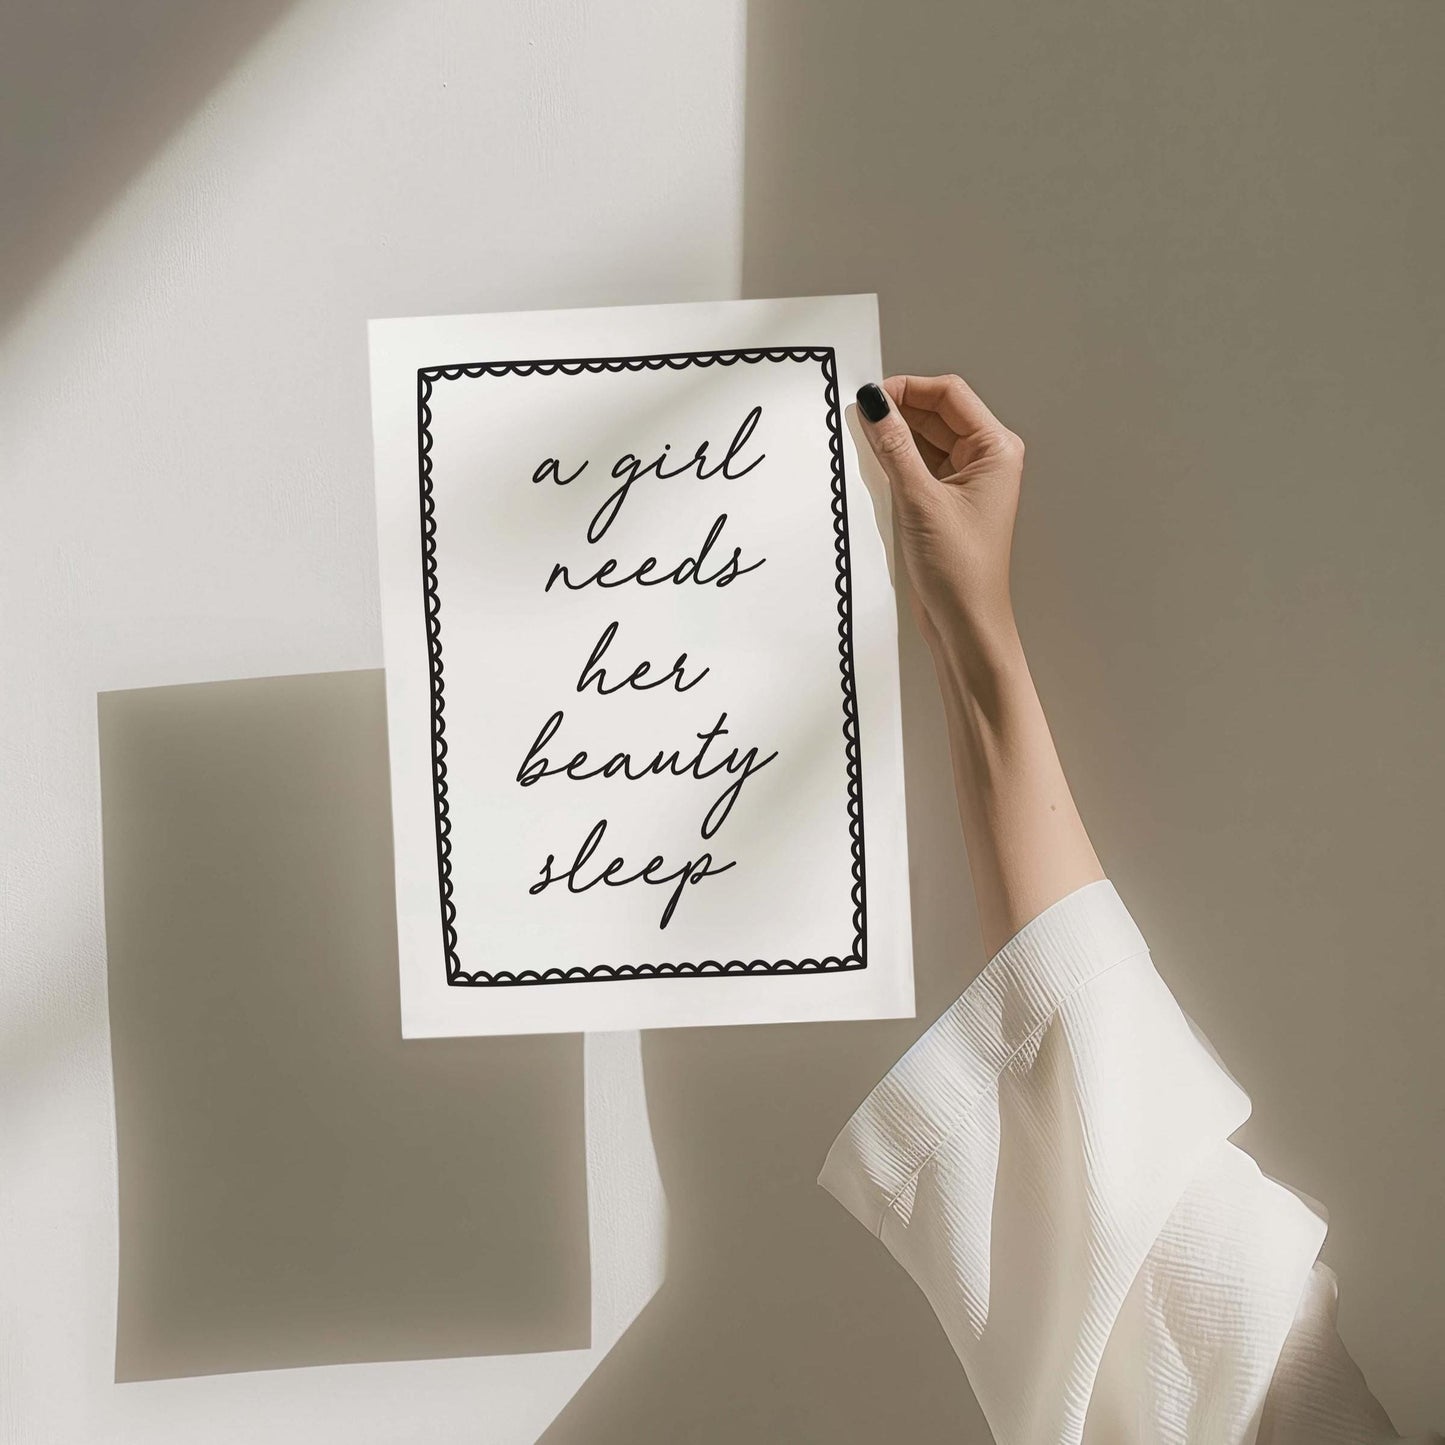 a girl
needs
her
beauty
sleep